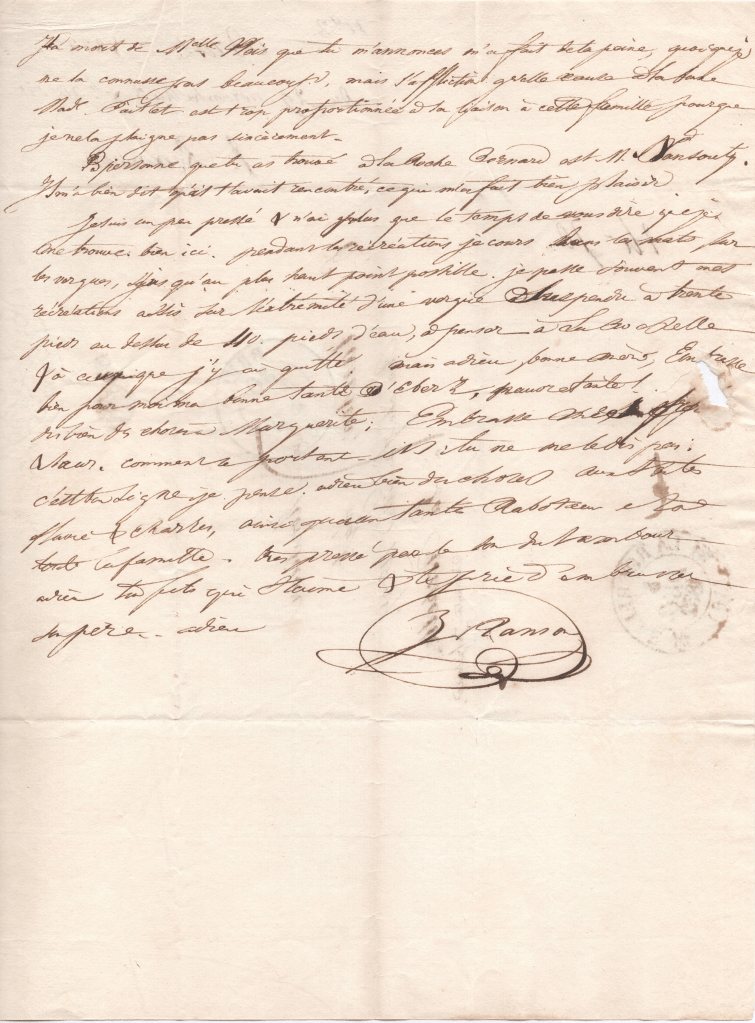 La mort de Melle que tu m'annonces m'a fait de la peine, quoique je
ne la connusse pas beaucoup, mais l'affliction qu'elle à la
Mad. est trop proportionnée à la liaison à cette famille pour que
je ne la plaigne pas sincèrement.
personne que tu as trouvé à la Roche Bernard est M.
Il m'a bien dit qu'il t'avait rencontré, ce qui m'a fait bien plaisir
Je suis un peu pressé & n'ai plus que le temps de vous dire que je
me trouve bien ici. pendant les récréations je cours dans les mats sur
les vergues, jusqu'au plus haut point possible. je passe souvent mes
récréations assis sur l'extrémité d'une vergue suspendu à trente
pieds au dessus de 40 pieds d'eau, à penser à La Rochelle
& à ce que j'y ai quitté mais adieu, bonne mère, Embrasse
bien pour moi ma bonne tante pauvre tante!
dis bien des choses à Marguerite; Embrasse
& soeur. comment se portent-ils: tu ne me le dis pas:
c'est bon signe je pense. adieu bien des choses aux tantes
& Charles, ainsi qu'à ma tante
toute la famille. très pressé par le son du tambour
adieu ton fils qui t'aime & te prie d'embrasser
son père. adieu
Ranson